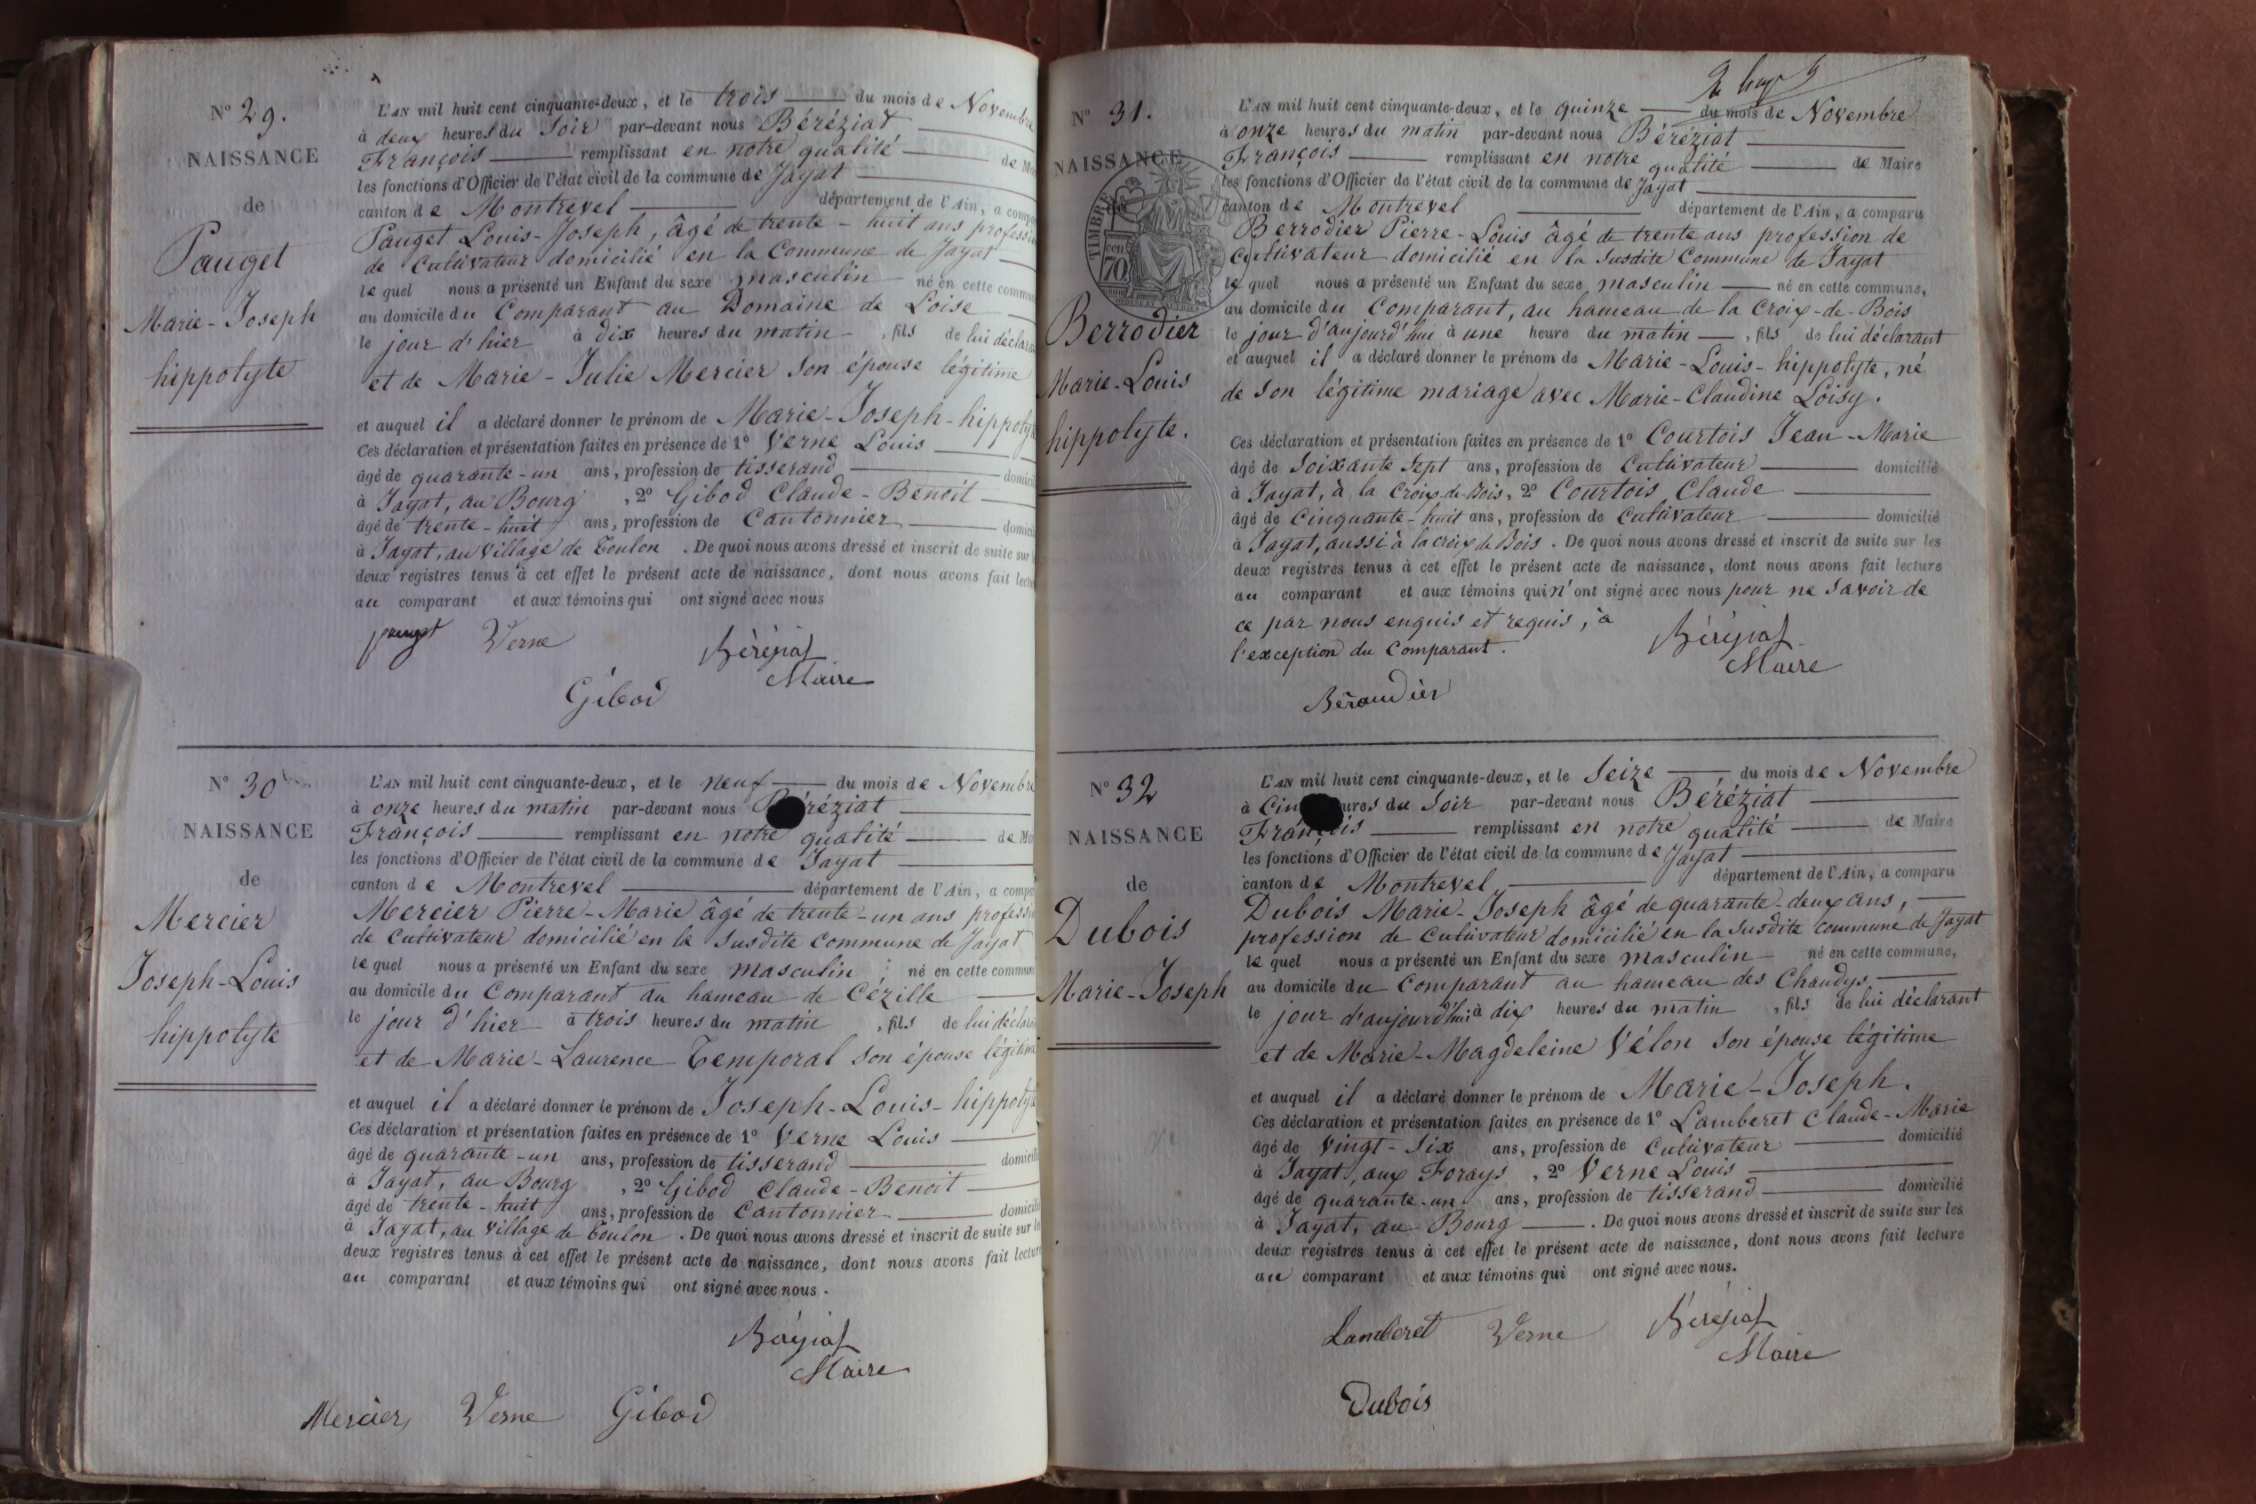 N° 29.
NAISSANCE
de
Pauget
Marie-Joseph
hippolyte
L'AN mil huit cent cinquante-deux, et le trois du mois de Novembre
à deux heures du Soir par-devant nous Béréziat
François remplissant en notre qualité de
les fonctions d'Officier de l'état civil de la commune de Jayat
canton de Montrevel département de l'Ain, a
Pauget Louis-Joseph, âgé de trente-huit ans
de Cultivateur domicilié en la Commune de Jayat
le quel nous a présenté un Enfant du sexe masculin né en cette
au domicile du Comparant au Domaine de Loise
le jour d'hier à dix heures du matin, fils de lui
et de Marie-Julie Mercier Son épouse légitime
et auquel il a déclaré donner le prénom de Marie-Joseph-
Ces déclaration et présentation faites en présence de 1° Verne Louis
âgé de quarante-un ans, profession de tisserand
à Jayat, au Bourg, 2° Gibod Claude-Benoit
âgé de trente-huit ans, profession de Cantonnier
à Jayat, au Village de Toulon. De quoi nous avons dressé et inscrit de suite sur
deux registres tenus à cet effet le présent acte de naissance, dont nous avons fait
au comparant et aux témoins qui ont signé avec nous
pauget Verne Béréziat
Maire
Gibod
N° 30
NAISSANCE
de
Mercier
Joseph-Louis
hippolyte
L'AN mil huit cent cinquante-deux, et le neuf du mois de Novembre
à onze heures du matin par-devant nous Béréziat
François remplissant en notre qualité de
les fonctions d'Officier de l'état civil de la commune de Jayat
canton de Montrevel département de l'Ain, a
Mercier Pierre-Marie âgé de trente-un ans
de Cultivateur domicilié en la Susdite commune de Jayat
le quel nous a présenté un Enfant du sexe masculin né en cette
au domicile du Comparant au hameau de Cézille
le jour d'hier à trois heures du matin, fils de lui
et de Marie-Laurence Temporal Son épouse
et auquel il a déclaré donner le prénom de Joseph-Louis-
Ces déclaration et présentation faites en présence de 1° Verne Louis
âgé de quarante-un ans, profession de tisserand
à Jayat, au Bourg, 2° Gibod Claude-Benoit
âgé de trente-huit ans, profession de Cantonnier
à Jayat, au Village de Toulon. De quoi nous avons dressé et inscrit de suite sur
deux registres tenus à cet effet le présent acte de naissance, dont nous avons fait
au comparant et aux témoins qui ont signé avec nous.
Béréziat
Maire
Mercier Verne Gibod
N° 31.
NAISSANCE
de
TIMBRE
70
Berrodier
Marie-Louis
hippolyte.
L'AN mil huit cent cinquante-deux, et le quinze du mois de Novembre
à onze heures du matin par-devant nous Béréziat
François remplissant en notre qualité de Maire
les fonctions d'Officier de l'état civil de la commune de Jayat
canton de Montrevel département de l'Ain, a comparu
Berrodier Pierre-Louis âgé de trente ans profession de
Cultivateur domicilié en la Susdite Commune de Jayat
le quel nous a présenté un Enfant du sexe masculin né en cette commune,
au domicile du Comparant, au hameau de la Croix-de-Bois
le jour d'aujourd'hui à une heure du matin, fils de lui déclarant
et auquel il a déclaré donner le prénom de Marie-Louis-hippolyte, né
de Son légitime mariage avec Marie-Claudine Loisy.
Ces déclaration et présentation faites en présence de 1° Courtois Jean-Marie
âgé de Soixante Sept ans, profession de Cultivateur domicilié
à Jayat, à la Croix-de-Bois, 2° Courtois Claude
âgé de Cinquante-huit ans, profession de Cultivateur domicilié
à Jayat, aussi à la croix de Bois. De quoi nous avons dressé et inscrit de suite sur les
deux registres tenus à cet effet le présent acte de naissance, dont nous avons fait lecture
au comparant et aux témoins qui n'ont signé avec nous pour ne Savoir de
ce par nous enquis et requis, à
l'exception du Comparant.
Béréziat
Maire
Béraudier
N° 32
NAISSANCE
de
Dubois
Marie-Joseph
L'AN mil huit cent cinquante-deux, et le Seize du mois de Novembre
à heures du Soir par-devant nous Béréziat
François remplissant en notre qualité de Maire
les fonctions d'Officier de l'état civil de la commune de Jayat
canton de Montrevel département de l'Ain, a comparu
Dubois Marie-Joseph âgé de quarante-deux ans,
profession de Cultivateur domicilié en la Susdite commune de Jayat
le quel nous a présenté un Enfant du sexe masculin né en cette commune,
au domicile du Comparant au hameau des Chaudys
le jour d'aujourd'hui à dix heures du matin, fils de lui déclarant
et de Marie-Magdeleine Vélon Son épouse légitime
et auquel il a déclaré donner le prénom de Marie-Joseph.
Ces déclaration et présentation faites en présence de 1° Lamberet Claude-Marie
âgé de Vingt-Six ans, profession de Cultivateur domicilié
à Jayat, aux Forays, 2° Verne Louis
âgé de quarante-un ans, profession de tisserand domicilié
à Jayat, au Bourg. De quoi nous avons dressé et inscrit de suite sur les
deux registres tenus à cet effet le présent acte de naissance, dont nous avons fait lecture
au comparant et aux témoins qui ont signé avec nous.
Lamberet Verne Béréziat
Maire
Dubois